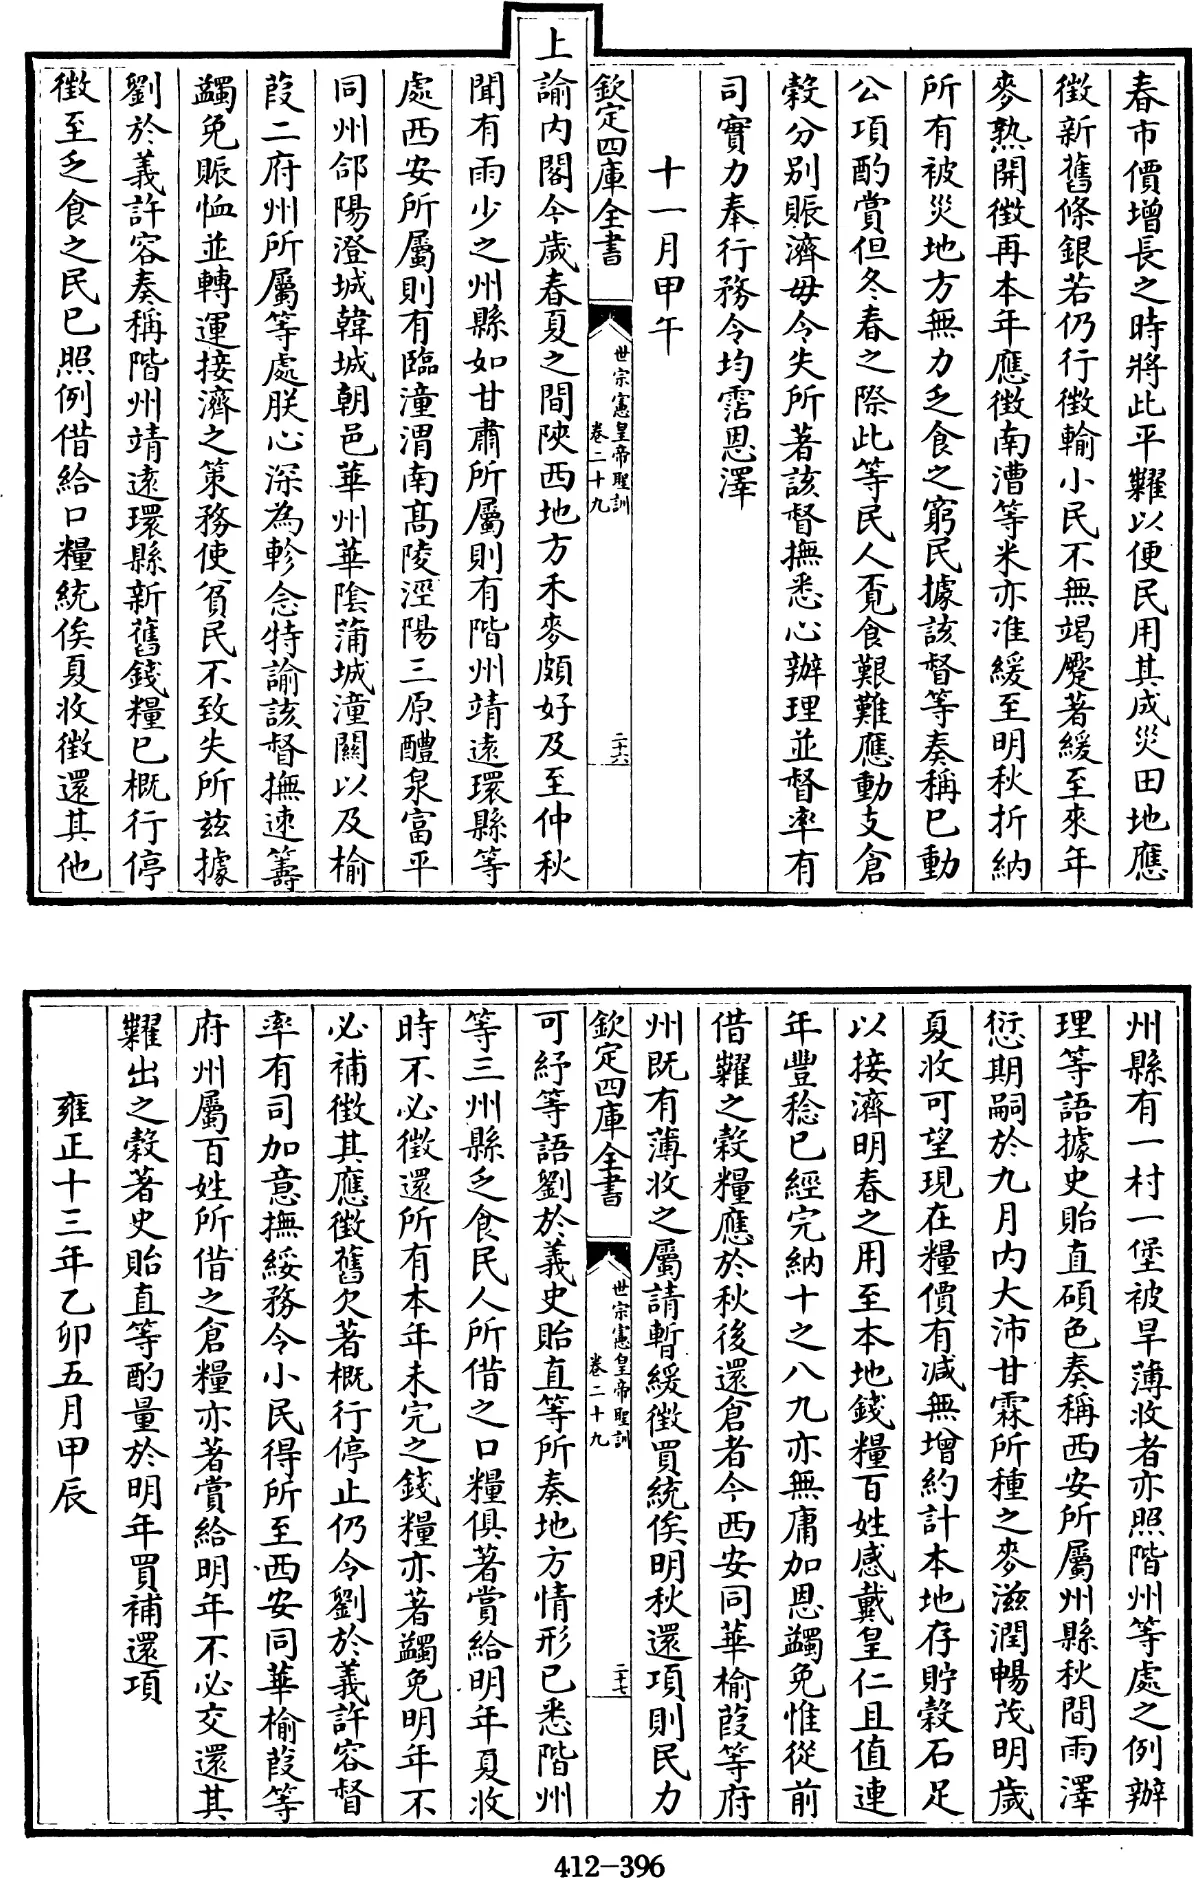 春市價增長之時將此平糶以便民用其成災田地應
徵新舊條銀若仍行徵輸小民不無竭蹷著緩至來年
麥熟開徵再本年應徵南漕等米亦准緩至明秋折納
所有被災地方無力乏食之窮民據該督等奏稱已動
公項酌賞但冬春之際此等民人覓食艱難應動支倉
穀分別賑濟毋令失所著該督撫悉心辦理並督率有
司實力奉行務令均霑恩澤
十一月甲午
欽定四庫全書
世宗憲皇帝聖訓
卷二十九
二十六
上諭內閣今歲春夏之間陝西地方禾麥頗好及至仲秋
聞有雨少之州縣如甘肅所屬則有階州靖遠環縣等
處西安所屬則有臨潼渭南高陵涇陽三原醴泉富平
同州郃陽澄城韓城朝邑華州華陰蒲城潼關以及榆
葭二府州所屬等處朕心深為軫念特諭該督撫速籌
蠲免賑恤並轉運接濟之策務使貧民不致失所茲據
劉於義許容奏稱階州靖遠環縣新舊錢糧已概行停
徵至乏食之民已照例借給口糧統俟夏收徵還其他
州縣有一村一堡被旱薄收者亦照階州等處之例辦
理等語據史貽直碩色奏稱西安所屬州縣秋間雨澤
愆期嗣於九月內大沛甘霖所種之麥滋潤暢茂明歲
夏收可望現在糧價有減無增約計本地存貯穀石足
以接濟明春之用至本地錢糧百姓感戴皇仁且值連
年豐稔已經完納十之八九亦無庸加恩蠲免惟從前
借糶之穀糧應於秋後還倉者今西安同華榆葭等府
州既有薄收之屬請暫緩徵買統俟明秋還項則民力
欽定四庫全書
世宗憲皇帝聖訓
卷二十九
二十七
可紓等語劉於義史貽直等所奏地方情形已悉階州
等三州縣乏食民人所借之口糧俱著賞給明年夏收
時不必徵還所有本年未完之錢糧亦著蠲免明年不
必補徵其應徵舊欠著概行停止仍令劉於義許容督
率有司加意撫綏務令小民得所至西安同華榆葭等
府州屬百姓所借之倉糧亦著賞給明年不必交還其
糶出之穀著史貽直等酌量於明年買補還項
雍正十三年乙卯五月甲辰
412-396